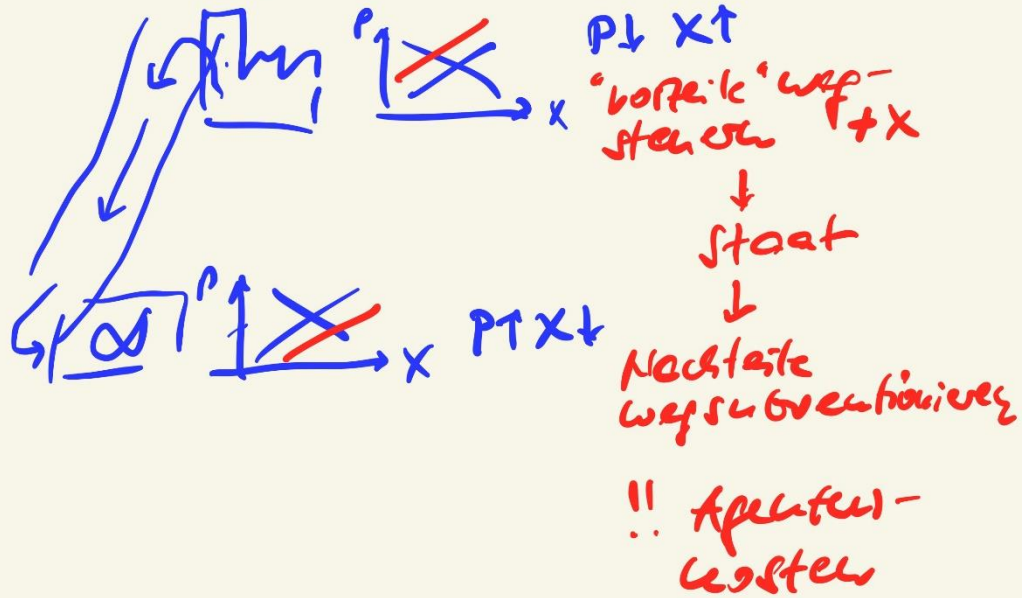 P
x
P↓ X↑
"Vorteile" weg-
steuern + x
↓
Staat
↓
P
x
P↑ X↓
Nachteile
wegsubventionieren
!! Agenten-
kosten